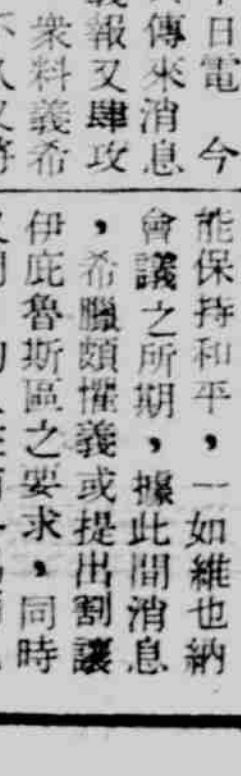 日電　今
傳來消息
報又肆攻
衆料義希
能保持和平，一如維也納
會議之所期，據此間消息
，希臘頗懼義或提出割讓
伊庇魯斯區之要求，同時